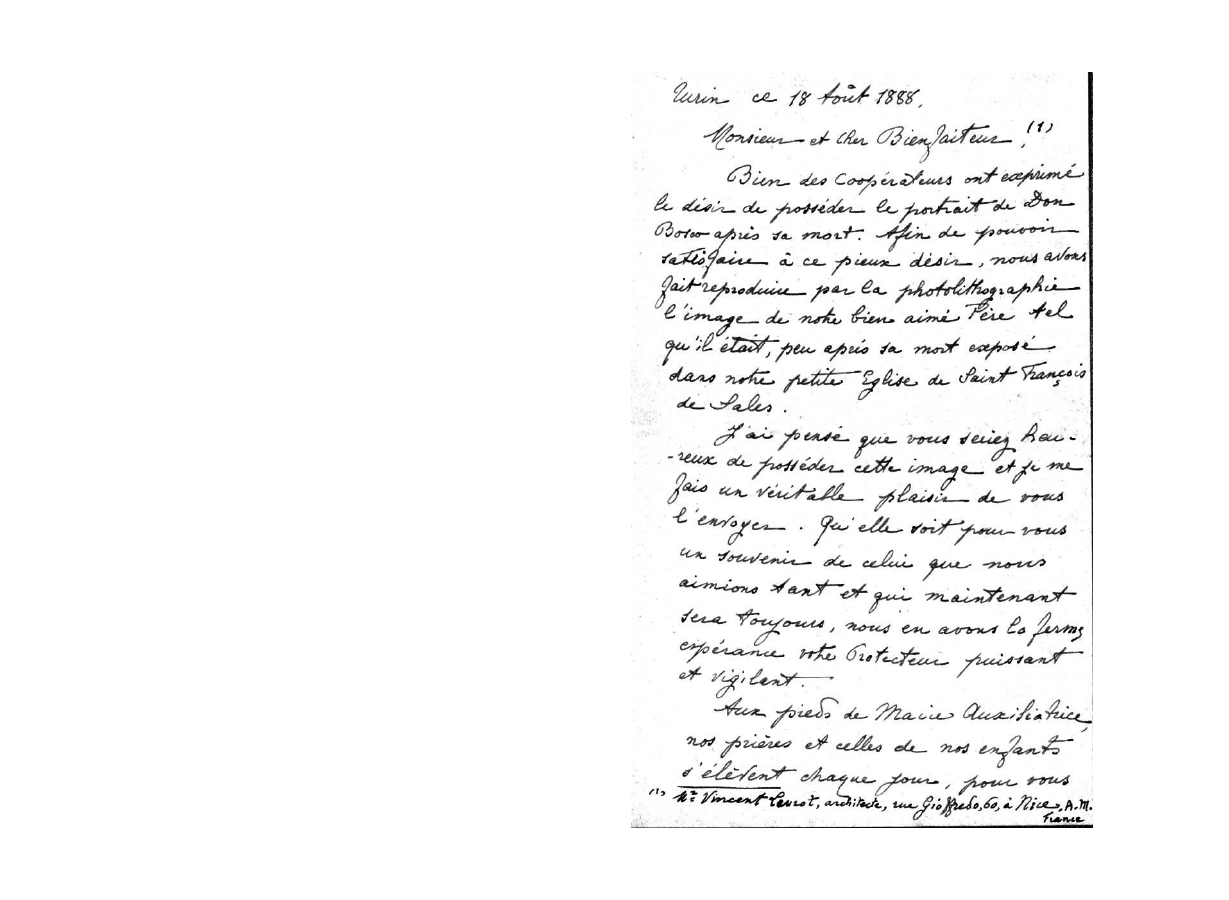 Turin ce 18 Août 1888.
Monsieur et Cher Bienfaiteur, (1)
Bien des Coopérateurs ont exprimé
le désir de posséder le portrait de Don
Bosco après sa mort. Afin de pouvoir
satisfaire à ce pieux désir, nous avons
fait reproduire par la photolithographie
l'image de notre bien aimé Père tel
qu'il était, peu après sa mort exposé
dans notre petite Eglise de Saint François
de Sales.
J'ai pensé que vous seriez heu-
-reux de posséder cette image et je me
fais un véritable plaisir de vous
l'envoyer. Qu'elle soit pour vous
un souvenir de celui que nous
aimions tant et qui maintenant
sera toujours, nous en avons la ferme
espérance votre Protecteur puissant
et vigilant.
Aux pieds de Marie Auxiliatrice,
nos prières et celles de nos enfants
s'élèvent chaque jour, pour vous
(1) Mr Vincent Levrot, architecte, rue Gioffredo, 60, à Nice, A.M.
France